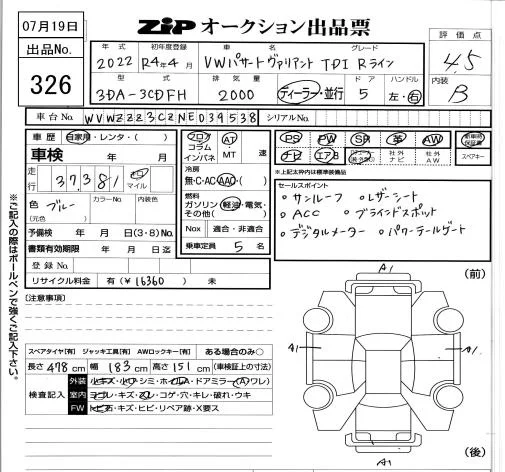 07月19日
出品No.
326
ZIP オークション出品票
評価点
4.5
内装
B
年式 初年度登録 車名 グレード
2022 R4年4月 VWパサートヴァリアント TDI Rライン
型式 排気量 ドア ハンドル
3DA-3CDFH 2000 ディーラー・並行 5 左・右
車台No. WVWZZZ3CZNE039538 シリアルNo.
車歴 自家用・レンタ・( )
車検 年 月
走行 37,381 km マイル
色 ブルー (元色) カラーNo. 内装色
予備検 年 月 日(3・8)No.
書類有効期限 年 月 日
登録No.
リサイクル料金 有(¥16360) 未
フロア コラム インパネ AT MT 速
冷房
無・C・AC・AAC・( )
燃料
ガソリン・軽油・電気・その他( )
Nox 適合・非適合
乗車定員 5 名
PS PW SR 革 AW 新車時保証書
ナビ エアB 社外ナビ 社外AW スペアキー
※上記太枠内は標準装備品
セールスポイント
・サンルーフ ・レザーシート
・ACC ・ブラインドスポット
・デジタルメーター ・パワーテールゲート
[注意事項]
スペアタイヤ[有] ジャッキ工具[有] AWロックキー[有] ある場合のみ○
長さ 478 cm 幅 183 cm 高さ 151 cm (車検証上の寸法)
検査記入
外装 小キズ・小ワ・シミ・ホイルA・ドアミラー(A)ワレ)
室内 ヨゴレ・キズ・スレ・コゲ・穴・キレ・破れ・ウキ
FW トビ石・キズ・ヒビ・リペア跡・X要ス
※ご記入の際はボールペンで強くご記入下さい。
(前)
A1
A1
A1
A1
(後)